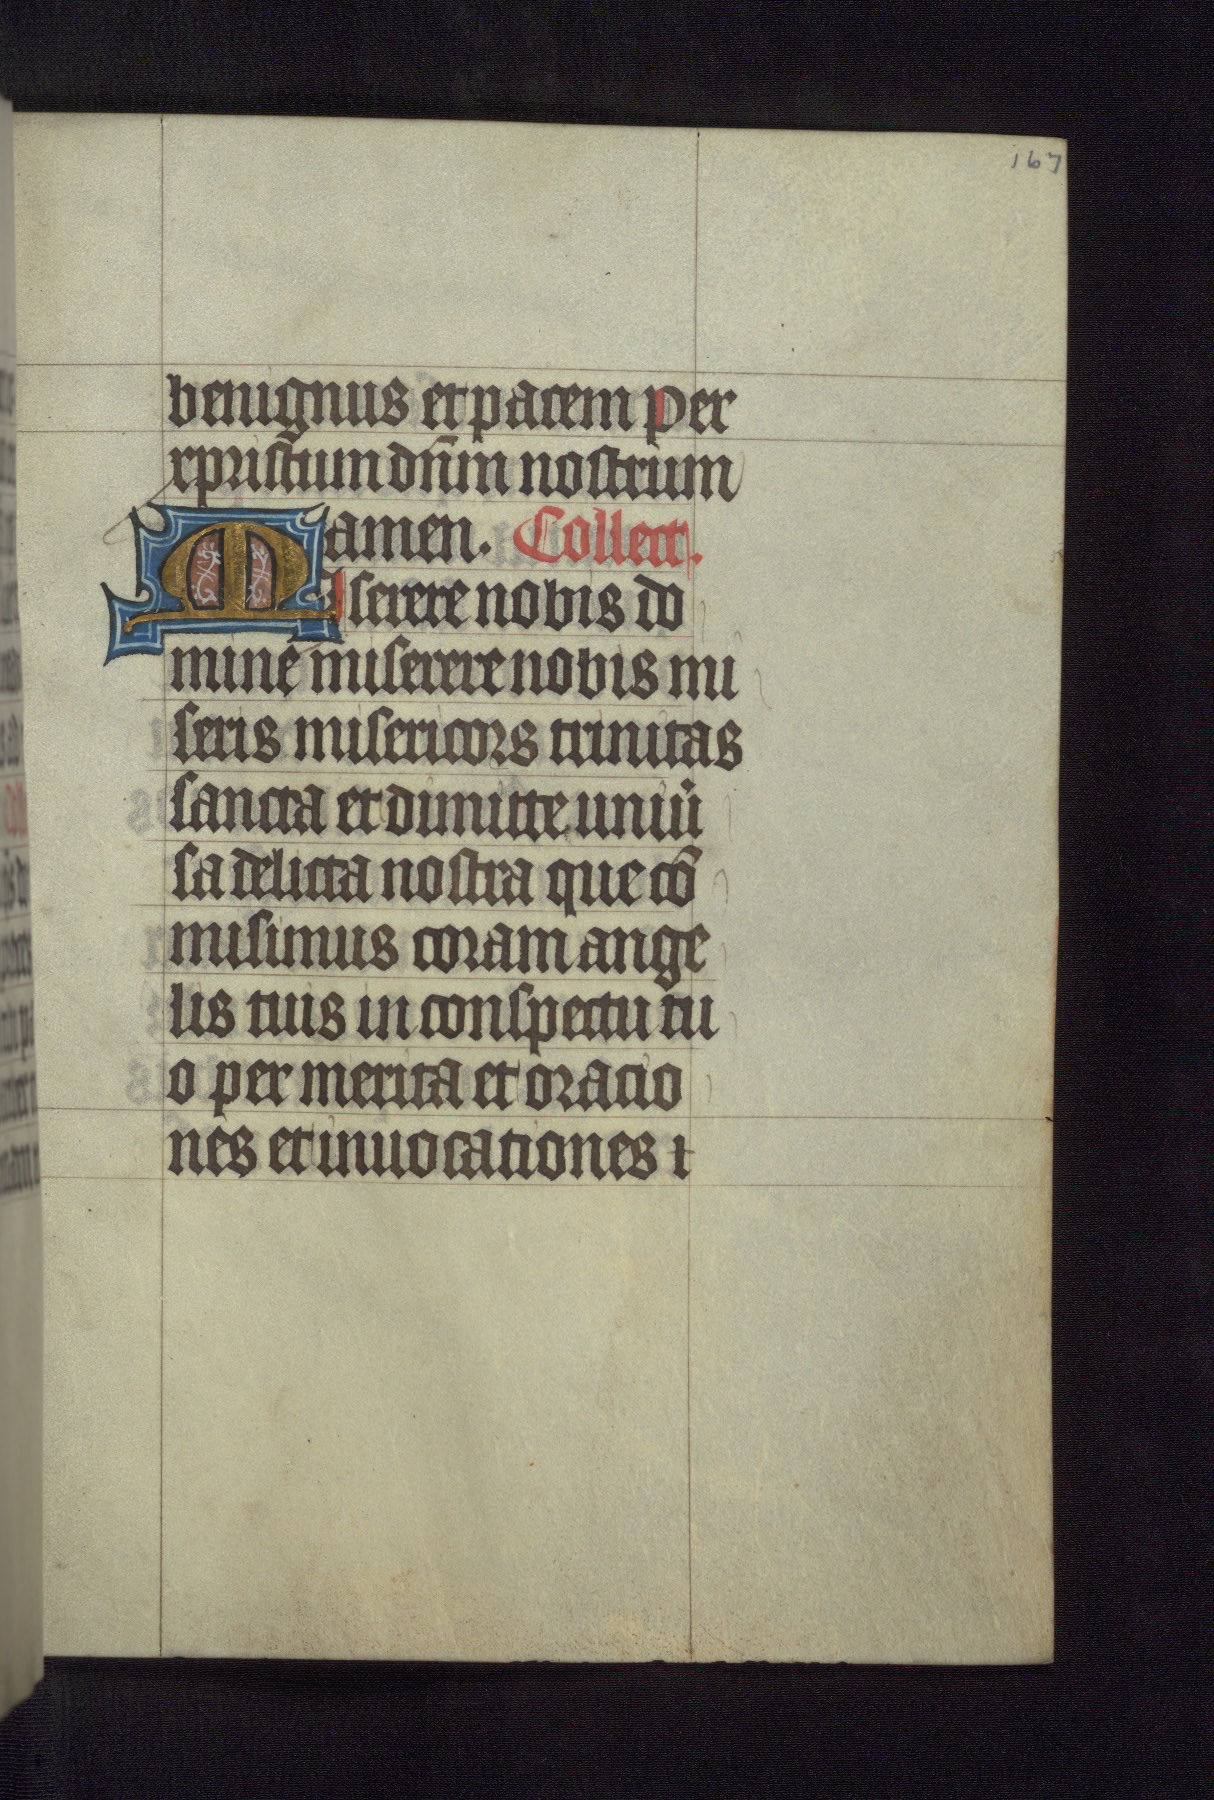 167
benignus et pacem per
xpristum dn̄m nostrum
amen. Collect.
Miserere nobis do
mine miserere nobis mi
seris misericors trinitas
sancta et dimitte uniu͛
sa delicta nostra que cō
misimus coram ange
lis tuis in conspectu tu
o per merita et oracio
nes et inuocationes ⁊